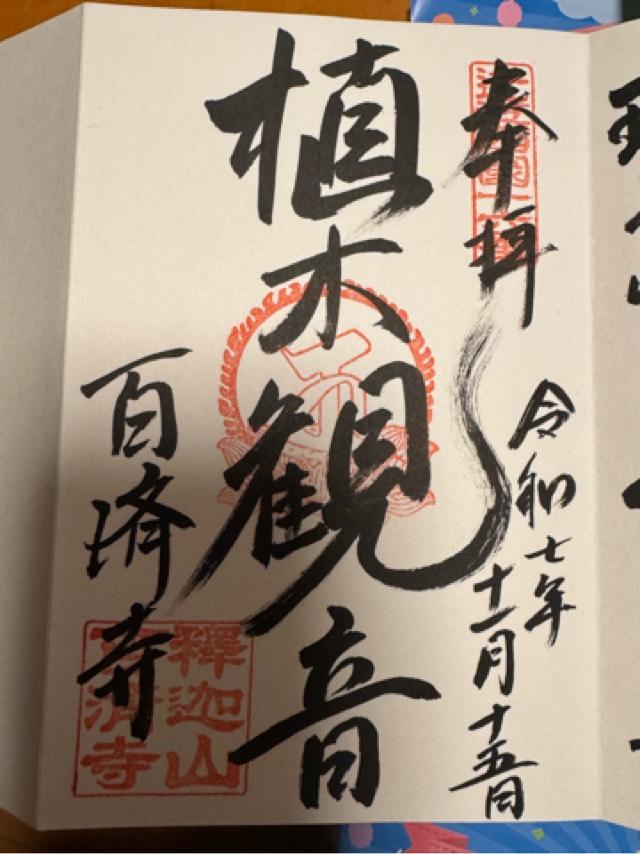 奉拝
令和七年
十一月十五日
植木観音
百済寺
釋迦山
百濟寺